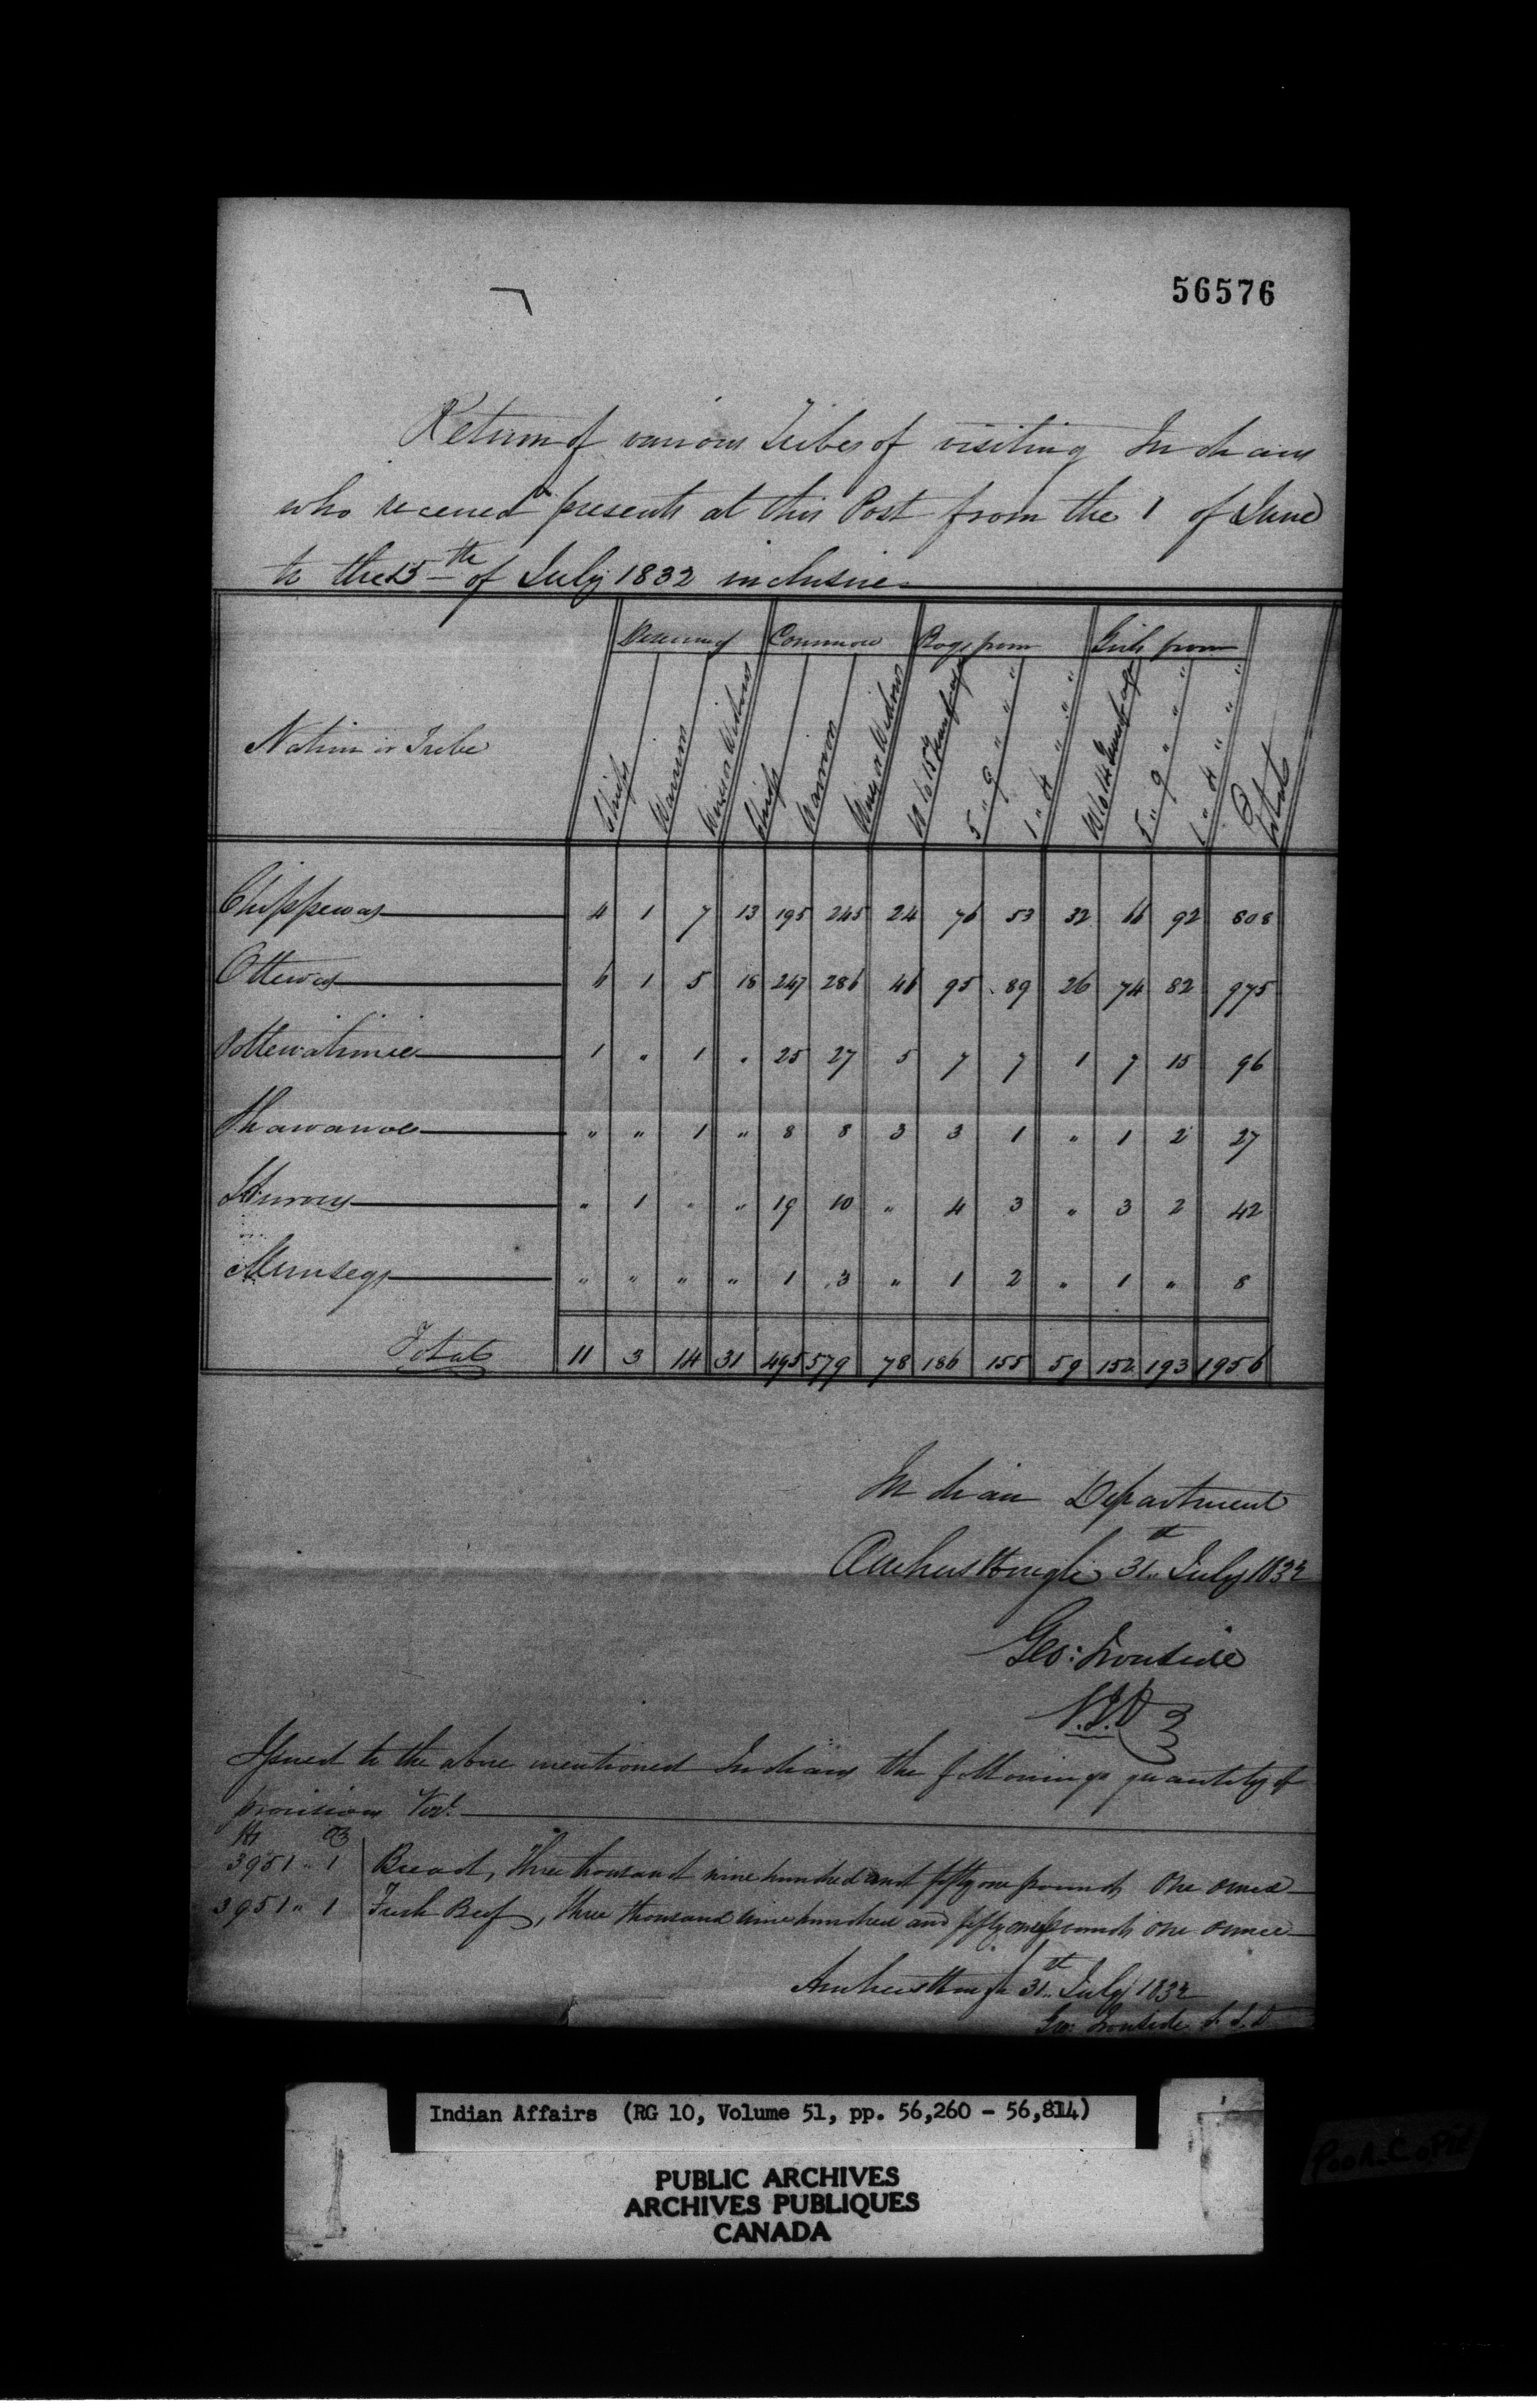 56576
Return of various Tribes of visiting Indians
who received presents at this Post from the 1 of June
to the 15th of July 1832 inclusive
Nation or Tribe
Deserving Common Boys from Girls from
Chiefs Warriors Wives or Widows Chiefs Warriors Wives or Widows 10 to 15 years of age 5 " 9 " " " 1 " 4 " " " 10 to 14 years of age 5 " 9 " " " 1 " 4 " " " Total
Chippewas 4 1 7 13 195 245 24 76 53 32 66 92 808
Ottewas 6 1 5 18 247 286 46 95 89 26 74 82 975
Pottewatimie 1 " 1 " 25 27 5 7 7 1 7 15 96
Shawanoes " " 1 " 8 8 3 3 1 " 1 2 27
Hurons " 1 " " 19 10 " 4 3 " 3 2 42
Munseys " " " " 1 3 " 1 2 " 1 " 8
Total 11 3 14 31 495 579 78 186 155 59 152 193 1956
Indian Department
Amherstburgh 31st July 1832
Geo: Ironside
S.I.A
Issued to the above mentioned Indians the following quantity of
provisions Vizt
lbs oz
3951 " 1 Bread, Three thousand nine hundred and fifty one pounds One ounce
3951 " 1 Fresh Beef, Three thousand nine hundred and fifty one pounds one ounce
Amherstburgh 31st July 1832
Geo: Ironside S.I.A
Indian Affairs (RG 10, Volume 51, pp. 56,260 - 56,814)
PUBLIC ARCHIVES
ARCHIVES PUBLIQUES
CANADA
Poor Copy